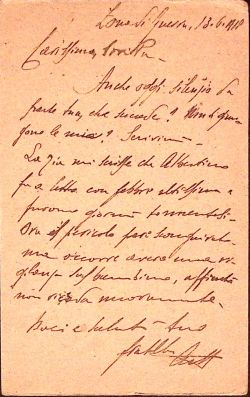 Zona di guerra, 13.6.1918
Carissima
Anche oggi silenzio da
parte tua, che succede? Non ti giun-
gono le mie? Scrivimi
La zia mi scrisse che Albertino
fu a letto con febbre altissima e
furono giorni tormentosi.
Ora il pericolo pare scongiurato
ma occorre avere una vi-
gilanza sul bambino, affinché
non ricada nuovamente.
Baci e saluti tuo
fratello